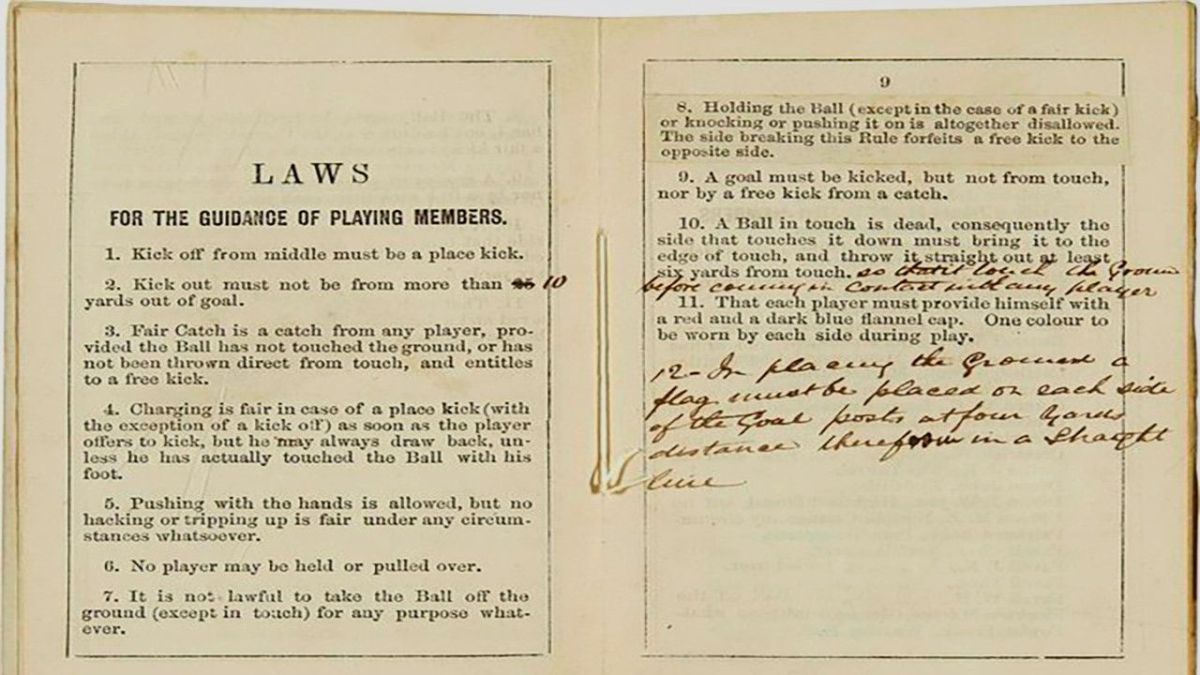 LAWS
FOR THE GUIDANCE OF PLAYING MEMBERS.
1. Kick off from middle must be a place kick.
2. Kick out must not be from more than 25 10
yards out of goal.
3. Fair Catch is a catch from any player, pro-
vided the Ball has not touched the ground, or has
not been thrown direct from touch, and entitles
to a free kick.
4. Charging is fair in case of a place kick (with
the exception of a kick off) as soon as the player
offers to kick, but he may always draw back, un-
less he has actually touched the Ball with his
foot.
5. Pushing with the hands is allowed, but no
hacking or tripping up is fair under any circum-
stances whatsoever.
6. No player may be held or pulled over.
7. It is not lawful to take the Ball off the
ground (except in touch) for any purpose what-
ever.
9
8. Holding the Ball (except in the case of a fair kick)
or knocking or pushing it on is altogether disallowed.
The side breaking this Rule forfeits a free kick to the
opposite side.
9. A goal must be kicked, but not from touch,
nor by a free kick from a catch.
10. A Ball in touch is dead, consequently the
side that touches it down must bring it to the
edge of touch, and throw it straight out at least
six yards from touch. so that it touch the Ground
before coming in contact with any player
11. That each player must provide himself with
a red and a dark blue flannel cap. One colour to
be worn by each side during play.
12 - In placing the Ground a
flag must be placed on each side
of the Goal posts at four Yards
distance therefrom in a Straight
line